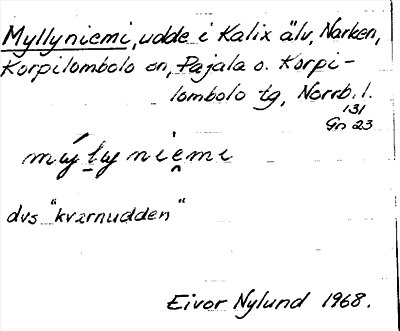 Myllyniemi, udde i Kalix älv, Narken,
Korpilombolo sn, Pajala o. Korpi-
lombolo tg, Norrb. l.
131
Gn 23
mýlyniemi
dvs "kvarnudden"
Eivor Nylund 1968.